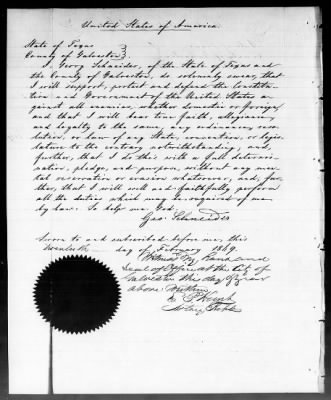 United States of America.
State of Texas
County of Galveston
I, Georg Schneider, of the State of Texas and
the County of Galveston, do solemnly swear, that
I will support, protect and defend the Constitu-
tion and Government of the United States a-
gainst all enemies, whether domestic or foreign,
and that I will bear true faith, allegiance,
and loyalty to the same, any ordinance, reso-
lution, or law of any State, convention, or legis-
lature to the contrary notwithstanding; and,
further, that I do this with a full determi-
nation, pledge, and purpose, without any men-
tal reservation or evasion whatsoever; and, fur-
ther, that I will well and faithfully perform
all the duties which may be required of me
by law. So help me God.
Geo. Schneider
Sworn to and subscribed before me, this
twentieth day of February 1869.
Witness My hand and
Seal of Office at the City of
Galveston the day & year
above written
Notary Public